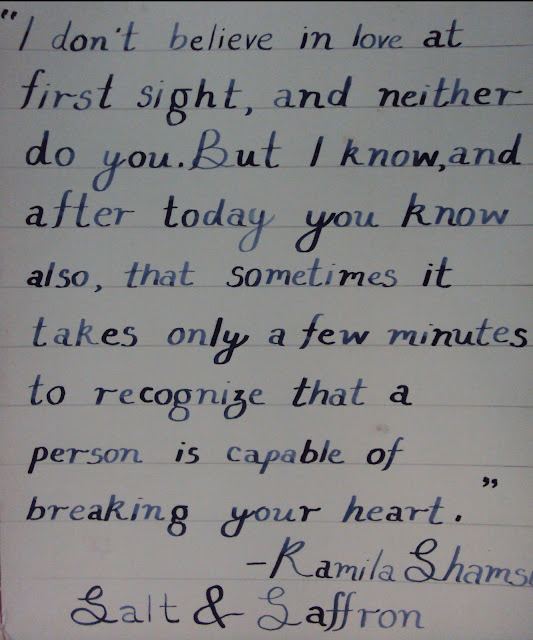 "I don't believe in love at
first sight, and neither
do you. But I know, and
after today you know
also, that sometimes it
takes only a few minutes
to recognize that a
person is capable of
breaking your heart."
-Kamila Shamsi
Salt & Saffron